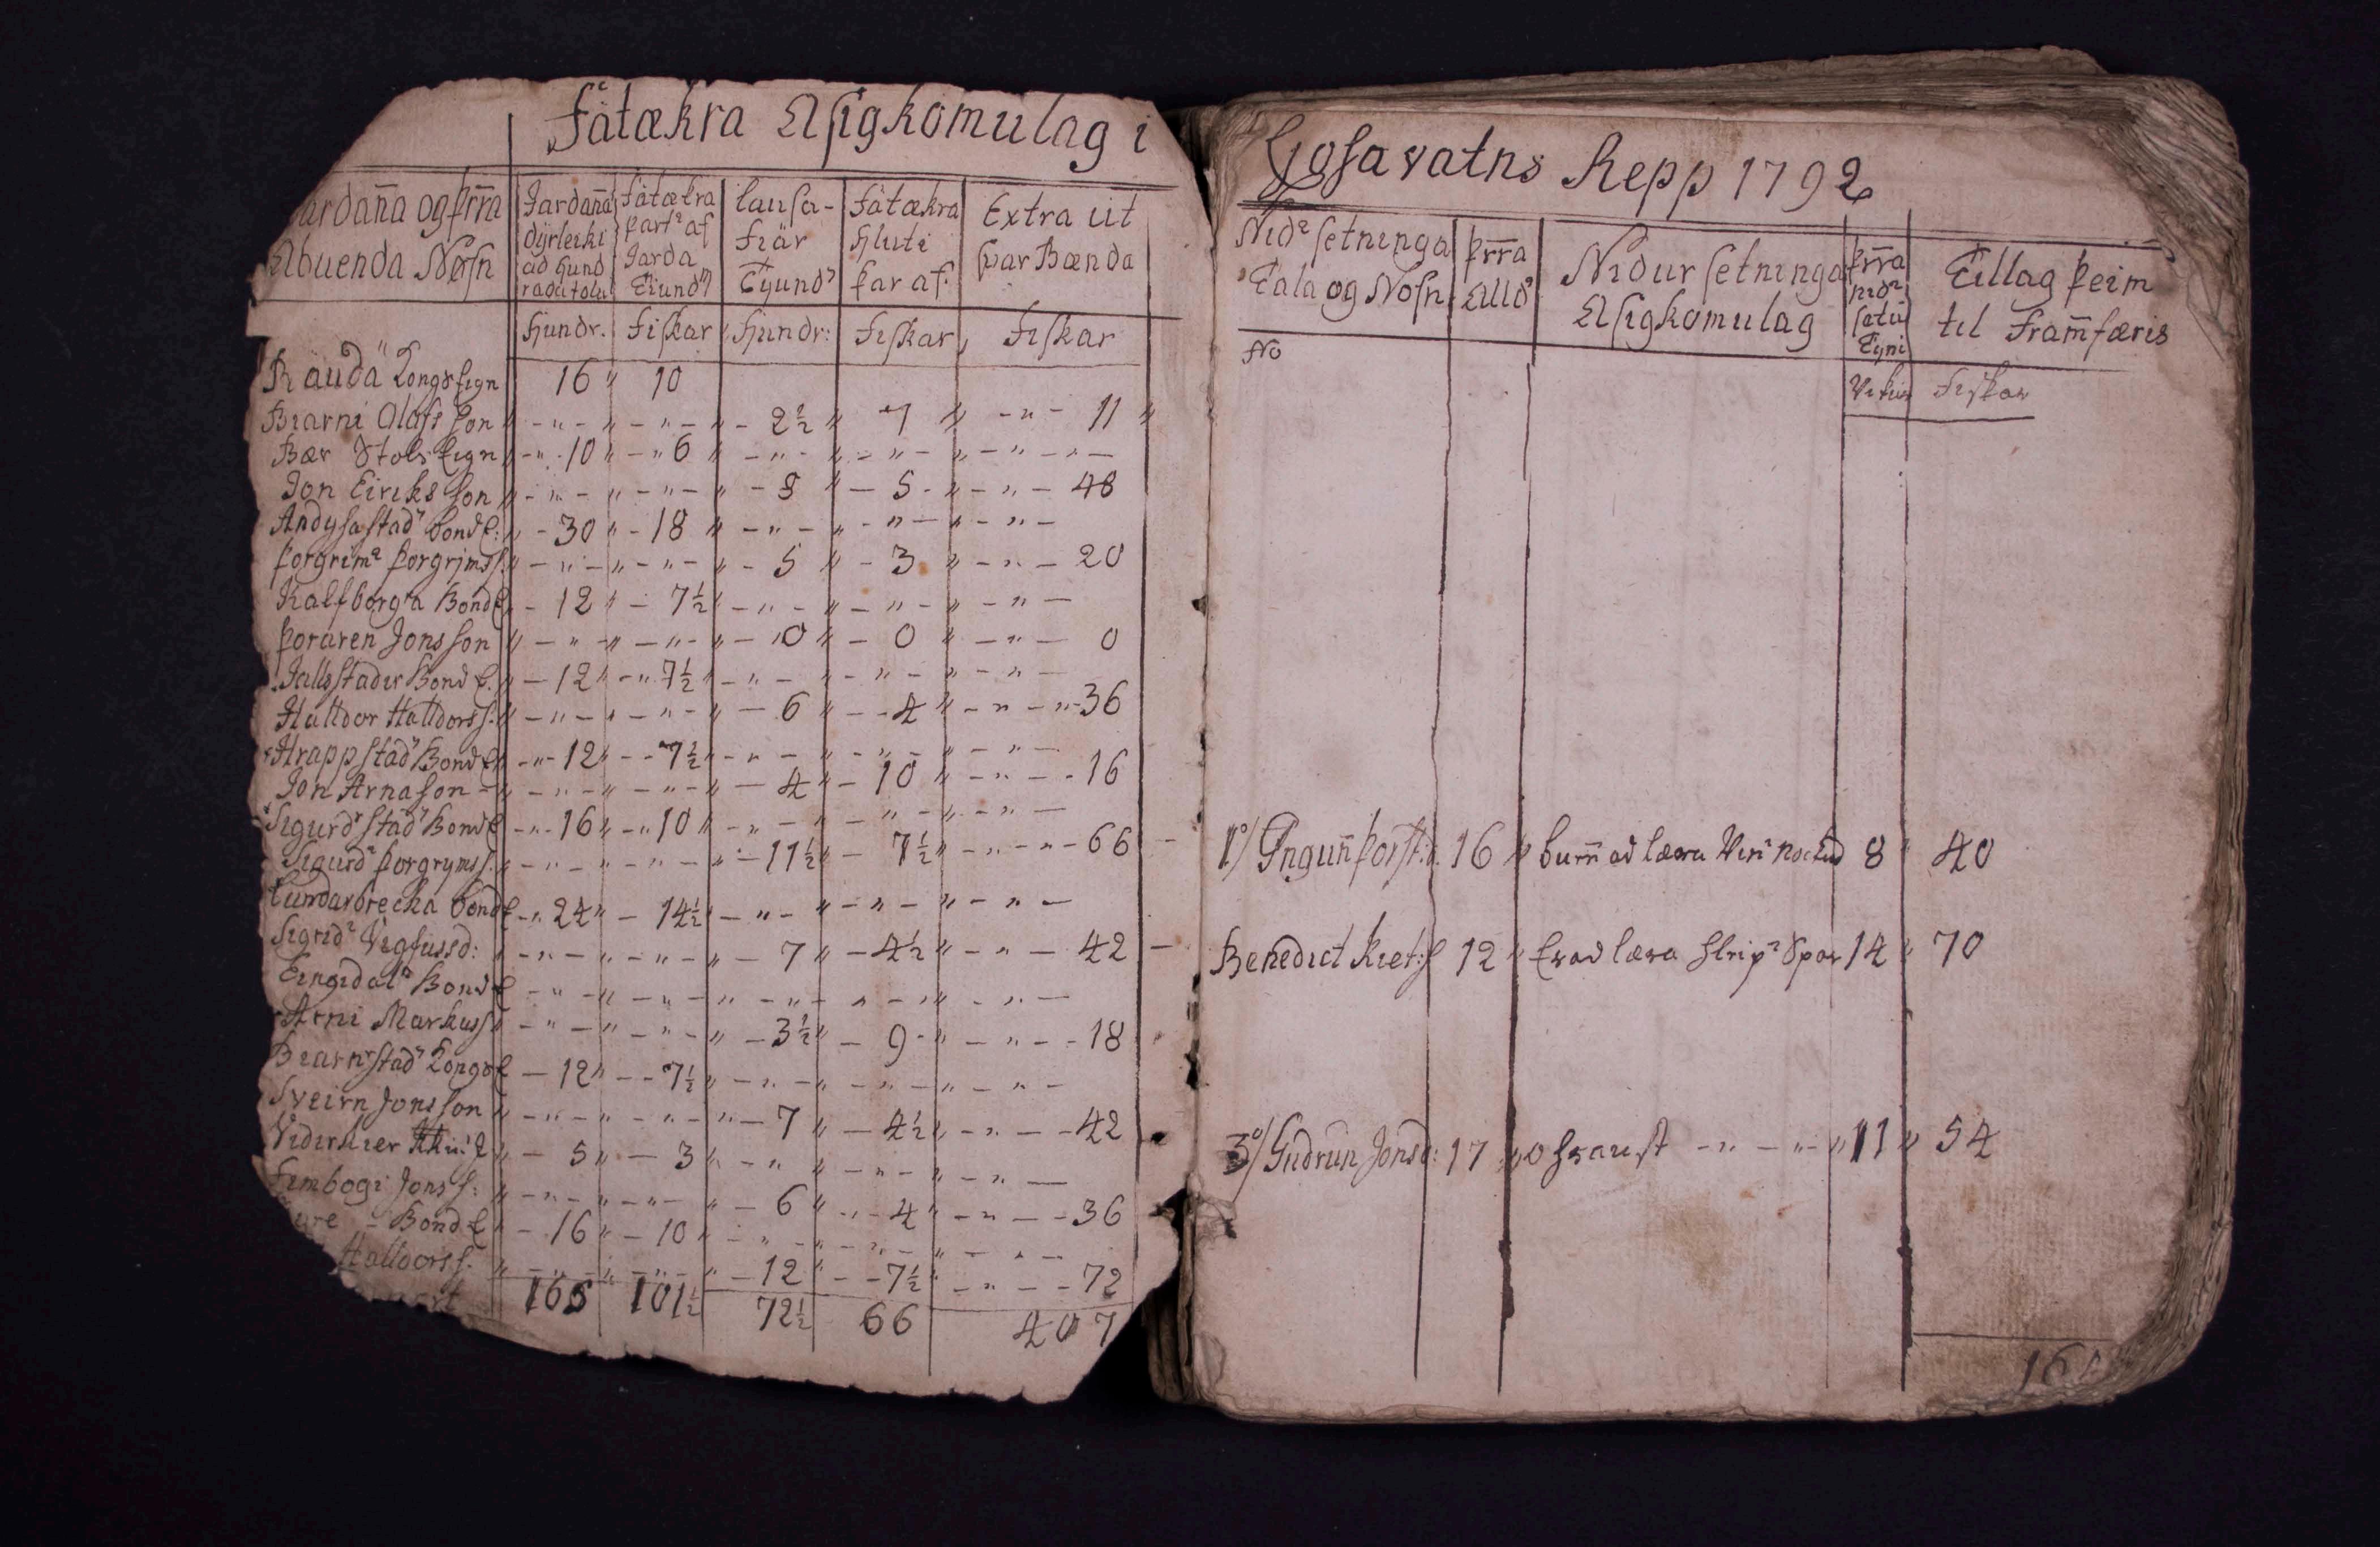 Fátækra Asigkomulag i
Jardana og þrra
Abuenda Nøfn
Jardana
dyrleiki
ad hund
radatølu
Fátækra
part af
Jarda
Tiund
lausa-
fiár
Tyund
Fátækra
hluti
þar af
Extra ut
svar Bænda
Hundr. Fiskar Hundr: Fiskar Fiskar
Rauda Kongs Eign 16 " 10
Biarni Olafs son 2½ 7 11
Bær Stols Eign 10 6
Jon Eiriks son 8 5 48
Andysastad bond E: 30 18
Þorgrim Þorgrims s. 5 3 20
Kalfborgra Bond E 12 7½
Þoraren Jons son 0 0 0
Jallsstader Bond E. 12 7½
Halldor Halldors s. 6 4 36
Hrappstad Bond E 12 7½
Jon Arnason 4 10 16
Sigurdstad Bond E 16 10
Sigurd Þorgryms s. 11½ 7½ 66
Lundarbrecka bond E 24 14½
Sigrid Vigfussd: 7 4½ 42
Eingidal Bond E
Arni Markuss 3½ 9 18
Biarnstad Kongs E 12 7½
Sveirn Jons son 7 4½ 42
Vidirkier 5 3
Finbogi Jons s: 6 4 36
Bond E 16 10
Halldors s. 12 7½ 72
165 101½ 72½ 66 407
Liosavatns Repp 1792
Nid setninga
Tala og Nøfn
þrra
Alld
Nidur setninga
Asigkomulag
þrra
nid
setu
Tyni
Tillag þeim
til Framfæris
No
Vikur Fiskar
1º/ Ingun Þorst: d. 16 burn ad læra 8 40
Benedict Kiet: s 12 Er ad læra 14 70
3º/ Gudrun Jonsd: 17 o hraust 11 54